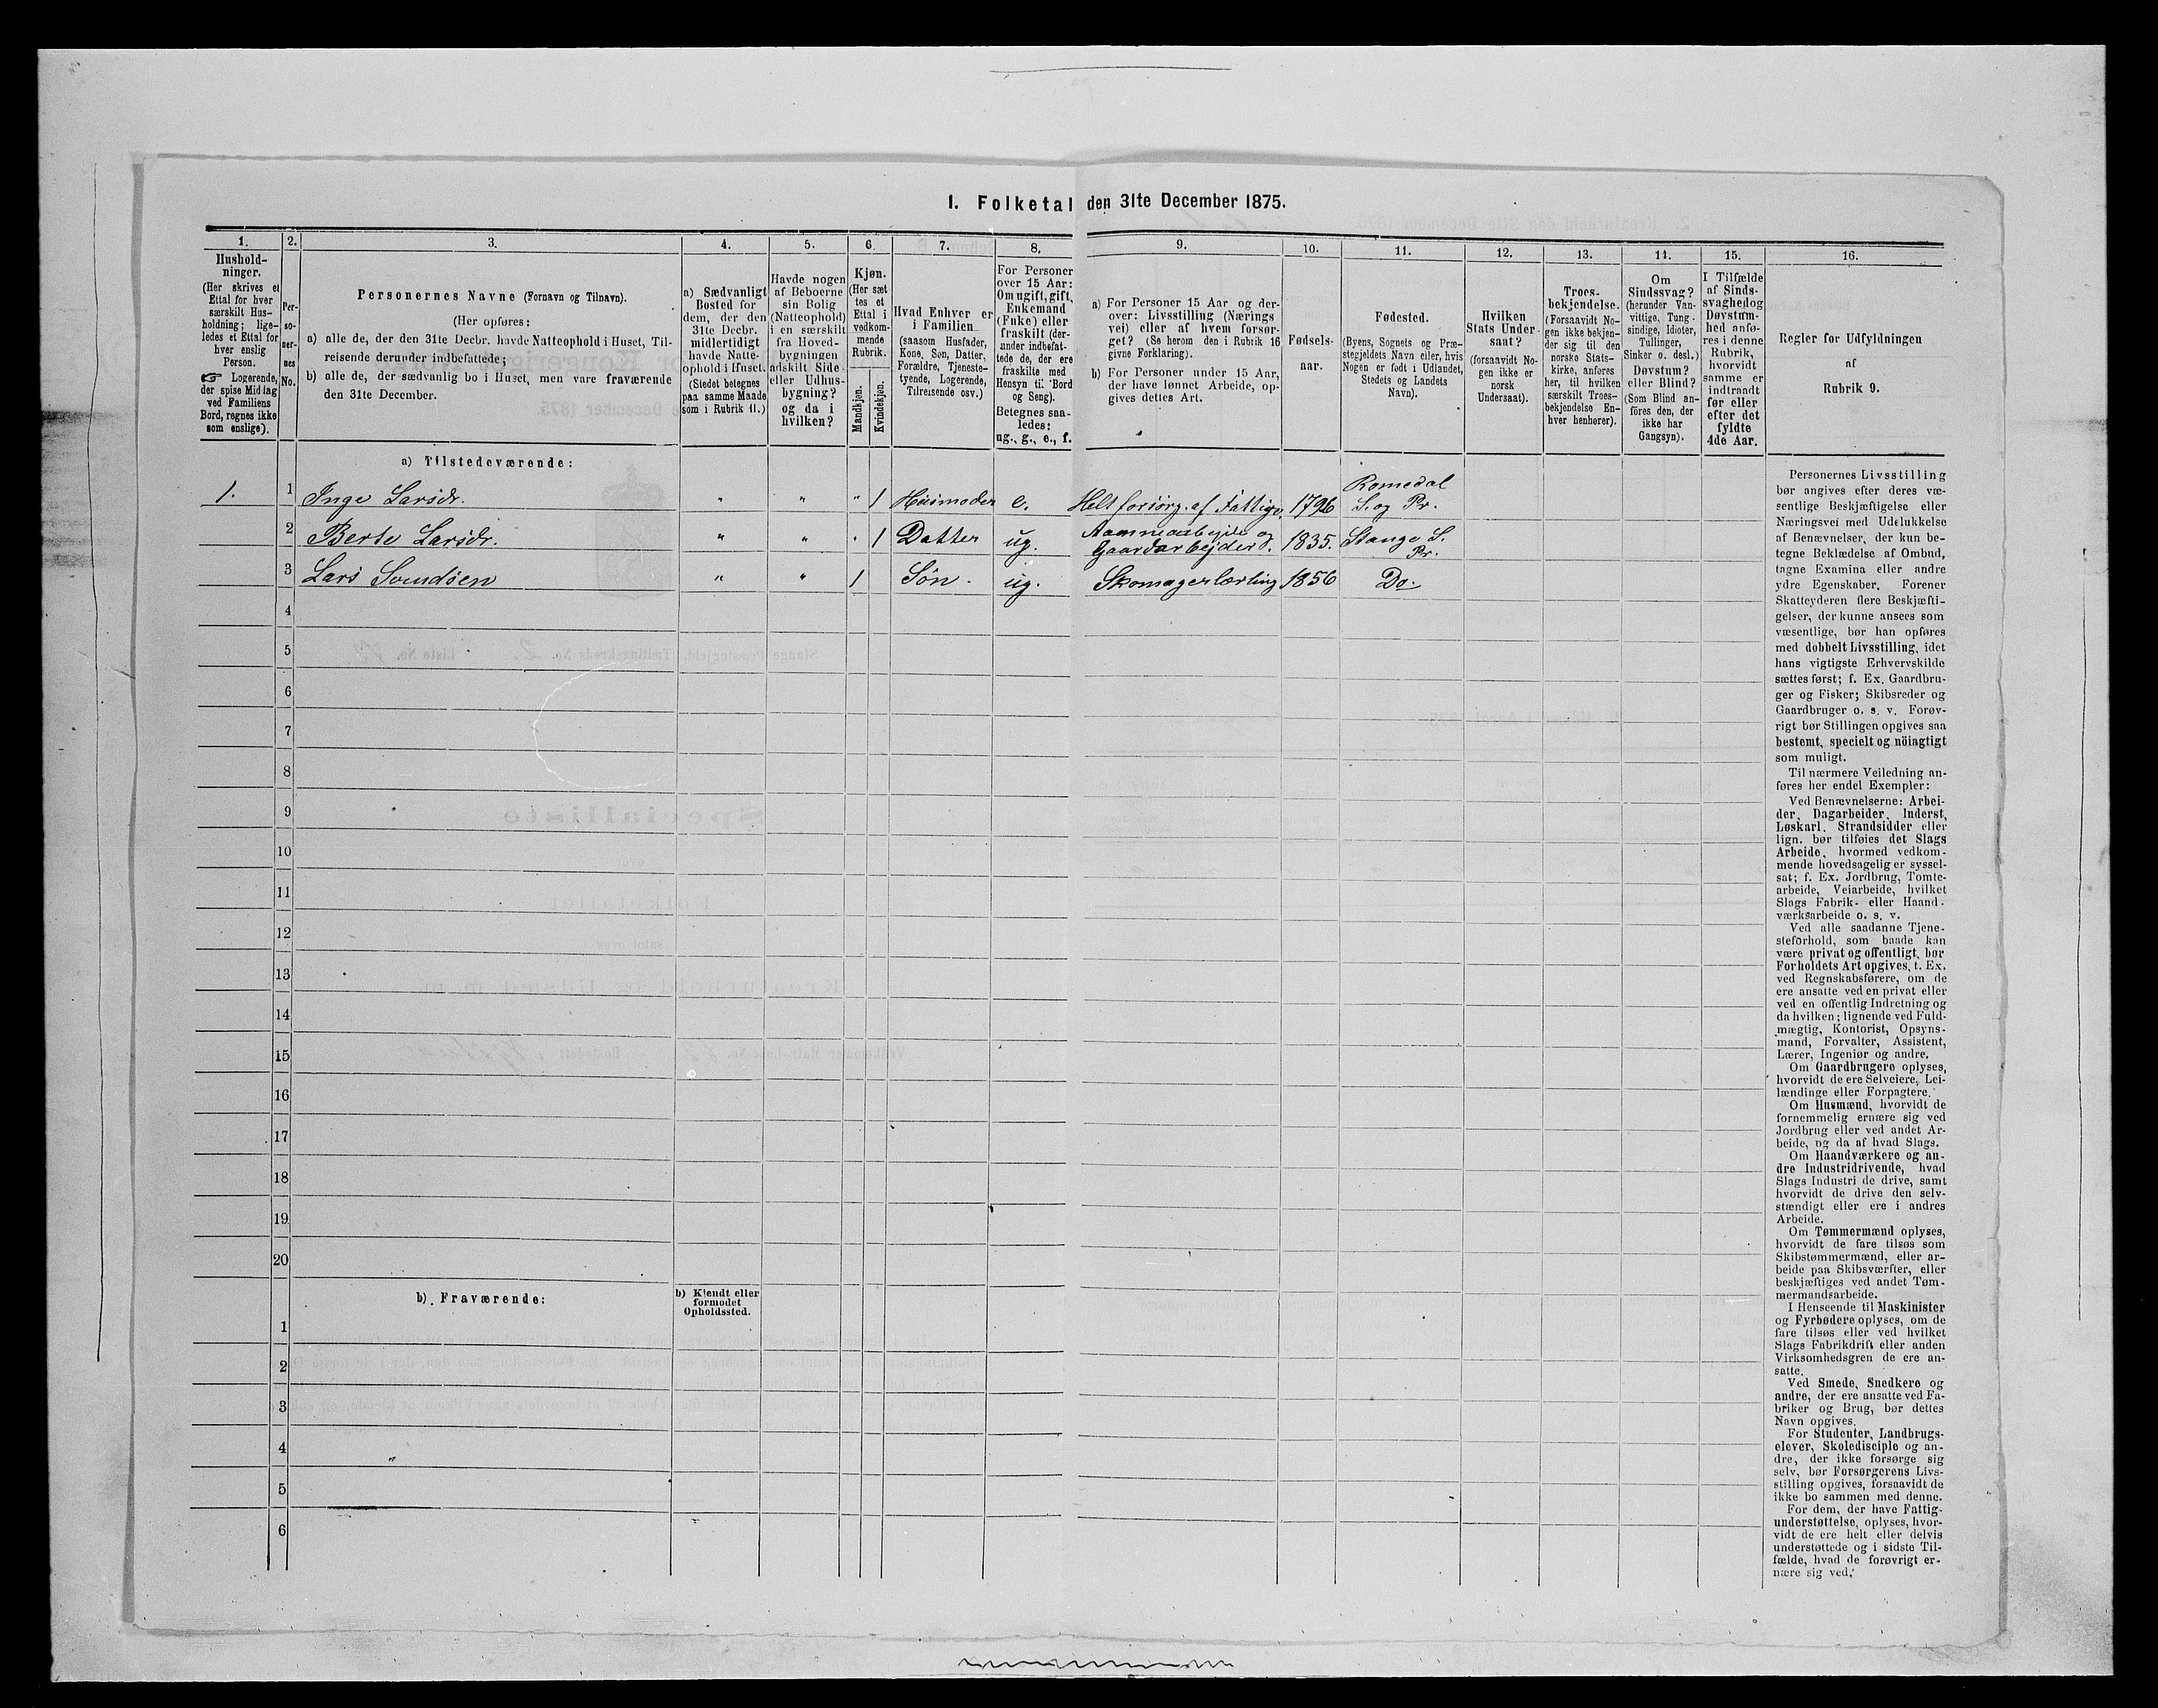 1. Folketal den 31te December 1875.
1.
2.
3.
4.
5.
6.
7.
8.
9.
10.
11.
12.
13.
14.
15.
16.
Hushold-
ninger.
(Her skrives et
Ettal for hver
særskilt Hus-
holdning; lige-
ledes et Ettal for
hver enslig
Person.
☞ Logerende,
der spise Middag
ved Familiens
Bord, regnes ikke
som enslige).
Per-
so-
ner-
nes
No.
Personernes Navne (Fornavn og Tilnavn).
(Her opføres:
a) alle de, der den 31te Decbr. havde Natteophold i Huset, Til-
reisende derunder indbefattede;
b) alle de, der sædvanlig bo i Huset, men vare fraværende
den 31te December.
a) Sædvanligt
Bosted for
dem, der den
31te Decbr.
midlertidigt
havde Natte-
ophold i Huset.
(Stedet betegnes
paa samme Maade
som i Rubrik 11.)
Havde nogen
af Beboerne
sin Bolig
(Natteophold)
i en særskilt
fra Hoved-
bygningen
adskilt Side-
eller Udhus-
bygning?
og da i
hvilken?
Kjøn.
(Her sæt
tes et
Ettal i
vedkom-
mende
Rubrik.
Mandkjøn.
Kvindekjøn.
Hvad Enhver er
i Familien
(saasom Husfader,
Kone, Søn, Datter,
Forældre, Tjeneste-
tyende, Logerende,
Tilreisende osv.)
For Personer
over 15 Aar:
Om ugift, gift,
Enkemand
(Enke) eller
fraskilt (der-
under indbefat-
tede de, der ere
fraskilte med
Hensyn til Bord
og Seng).
Betegnes saa-
ledes:
ug., g., e., f.
a) For Personer 15 Aar og der-
over: Livsstilling (Nærings
vei) eller af hvem forsør-
get? (Se herom den i Rubrik 16
givne Forklaring).
b) For Personer under 15 Aar,
der have lønnet Arbeide, op-
gives dettes Art.
Fødsels-
aar.
Fødested.
(Byens, Sognets og Præ-
stegjeldets Navn eller, hvis
Nogen er født i Udlandet,
Stedets og Landets
Navn).
Hvilken
Stats Under-
saat?
(forsaavidt No-
gen ikke er
norsk
Undersaat).
Troes-
bekjendelse.
(Forsaavidt No-
gen ikke bekjen-
der sig til den
norske Stats-
kirke, anføres
her, til hvilken
særskilt Troes-
bekjendelse En-
hver henhører).
Om
Sindssvag?
(herunder Van-
vittige, Tung-
sindige, Idioter,
Tullinger,
Sinker o. desl.)
Døvstum?
eller Blind?
(Som Blind an-
føres den, der
ikke har
Gangsyn).
I Tilfælde
af Sinds-
svaghed og
Døvstum-
hed anfø-
res i denne
Rubrik,
hvorvidt
samme er
indtraadt
før eller
efter det
fyldte
4de Aar.
Regler for Udfyldningen
af
Rubrik 9.
a) Tilstedeværende:
1. 1 Inge Larsdr. " " " 1 Husmoder e. Helt forsörg. af Fattigv. 1796 Romedal
S. og Pr.
2 Berte Larsdr. " " " 1 Datter ug. og
Gaardarbejder. 1835. Stange S.
Pr.
3 Lars Svendsen " " 1 Sön. ug. Skomagerlærling 1856 Do.
4
5
6
7
8
9
10
11
12
13
14
15
16
17
18
19
20
b) Fraværende:
b) Kjendt eller
formodet
Opholdssted.
1
2
3
4
5
6
Personernes Livsstilling
bør angives efter deres væ-
sentlige Beskjæftigelse eller
Næringsvei med Udelukkelse
af Benævnelser, der kun be-
tegne Beklædelse af Ombud,
tagne Examina eller andre
ydre Egenskaber. Forener
Skatteyderen flere Beskjæfti-
gelser, der kunne ansees som
væsentlige, bør han opføres
med dobbelt Livsstilling, idet
hans vigtigste Erhvervskilde
sættes først; f. Ex. Gaardbru-
ger og Fisker; Skibsreder og
Gaardbruger o. s. v. Forøv-
rigt bør Stillingen opgives saa
bestemt, specielt og nöiagtigt
som muligt.
Til nærmere Veiledning an-
føres her endel Exempler:
Ved Benævnelserne: Arbei-
der, Dagarbeider, Inderst,
Løskarl, Strandsidder eller
lign. bør tilføies det Slags
Arbeide, hvormed vedkom-
mende hovedsagelig er syssel-
sat; f. Ex. Jordbrug, Tomte-
arbeide, Veiarbeide, hvilket
Slags Fabrik- eller Haand-
værksarbeide o. s. v.
Ved alle saadanne Tjene-
steforhold, som baade kan
være privat og offentligt, bør
Forholdets Art opgives, t. Ex.
ved Regnskabsførere, om de
ere ansatte ved en privat eller
ved en offentlig Indretning og
da hvilken; lignende ved Fuld-
mægtig, Kontorist, Opsyns-
mand, Forvalter, Assistent,
Lærer, Ingeniør og andre.
Om Gaardbrugere oplyses,
hvorvidt de ere Selveiere, Lei-
lændinge eller Forpagtere.
Om Husmænd, hvorvidt de
fornemmelig ernære sig ved
Jordbrug eller ved andet Ar-
beide, og da af hvad Slags.
Om Haandværkere og an-
dre Industridrivende, hvad
Slags Industri de drive, samt
hvorvidt de drive den selv-
stændigt eller ere i andres
Arbeide.
Om Tømmermænd oplyses,
hvorvidt de fare tilsøs som
Skibstømmermænd, eller ar-
beide paa Skibsværfter, eller
beskjæftiges ved andet Tøm-
mermandsarbeide.
I Henseende til Maskinister
og Fyrbødere oplyses, om de
fare tilsøs eller ved hvilket
Slags Fabrikdrift eller anden
Virksomhedsgren de ere an-
satte.
Ved Smede, Snedkere og
andre, der ere ansatte ved Fa-
briker og Brug, bør dettes
Navn opgives.
For Studenter, Landbrugs-
elever, Skoledisciple og an-
dre, der ikke forsørge sig
selv, bør Forsørgerens Livs-
stilling opgives, forsaavidt de
ikke bo sammen med denne.
For dem, der have Fattig-
understøttelse, oplyses, hvor-
vidt de ere helt eller delvis
understøttede og i sidste Til-
fælde, hvad de forøvrigt er-
nære sig ved.